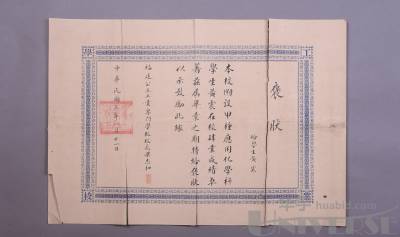 褒狀
給學生黃雲
本校附設甲種應用化學科
學生黃雲在校肄業成績卓
著茲屆畢業之期特給褒狀
以示鼓勵此據
福建公立工業專門學校校長
中華民國五年
工
業
學
校
huabid.com
UNIVERSE